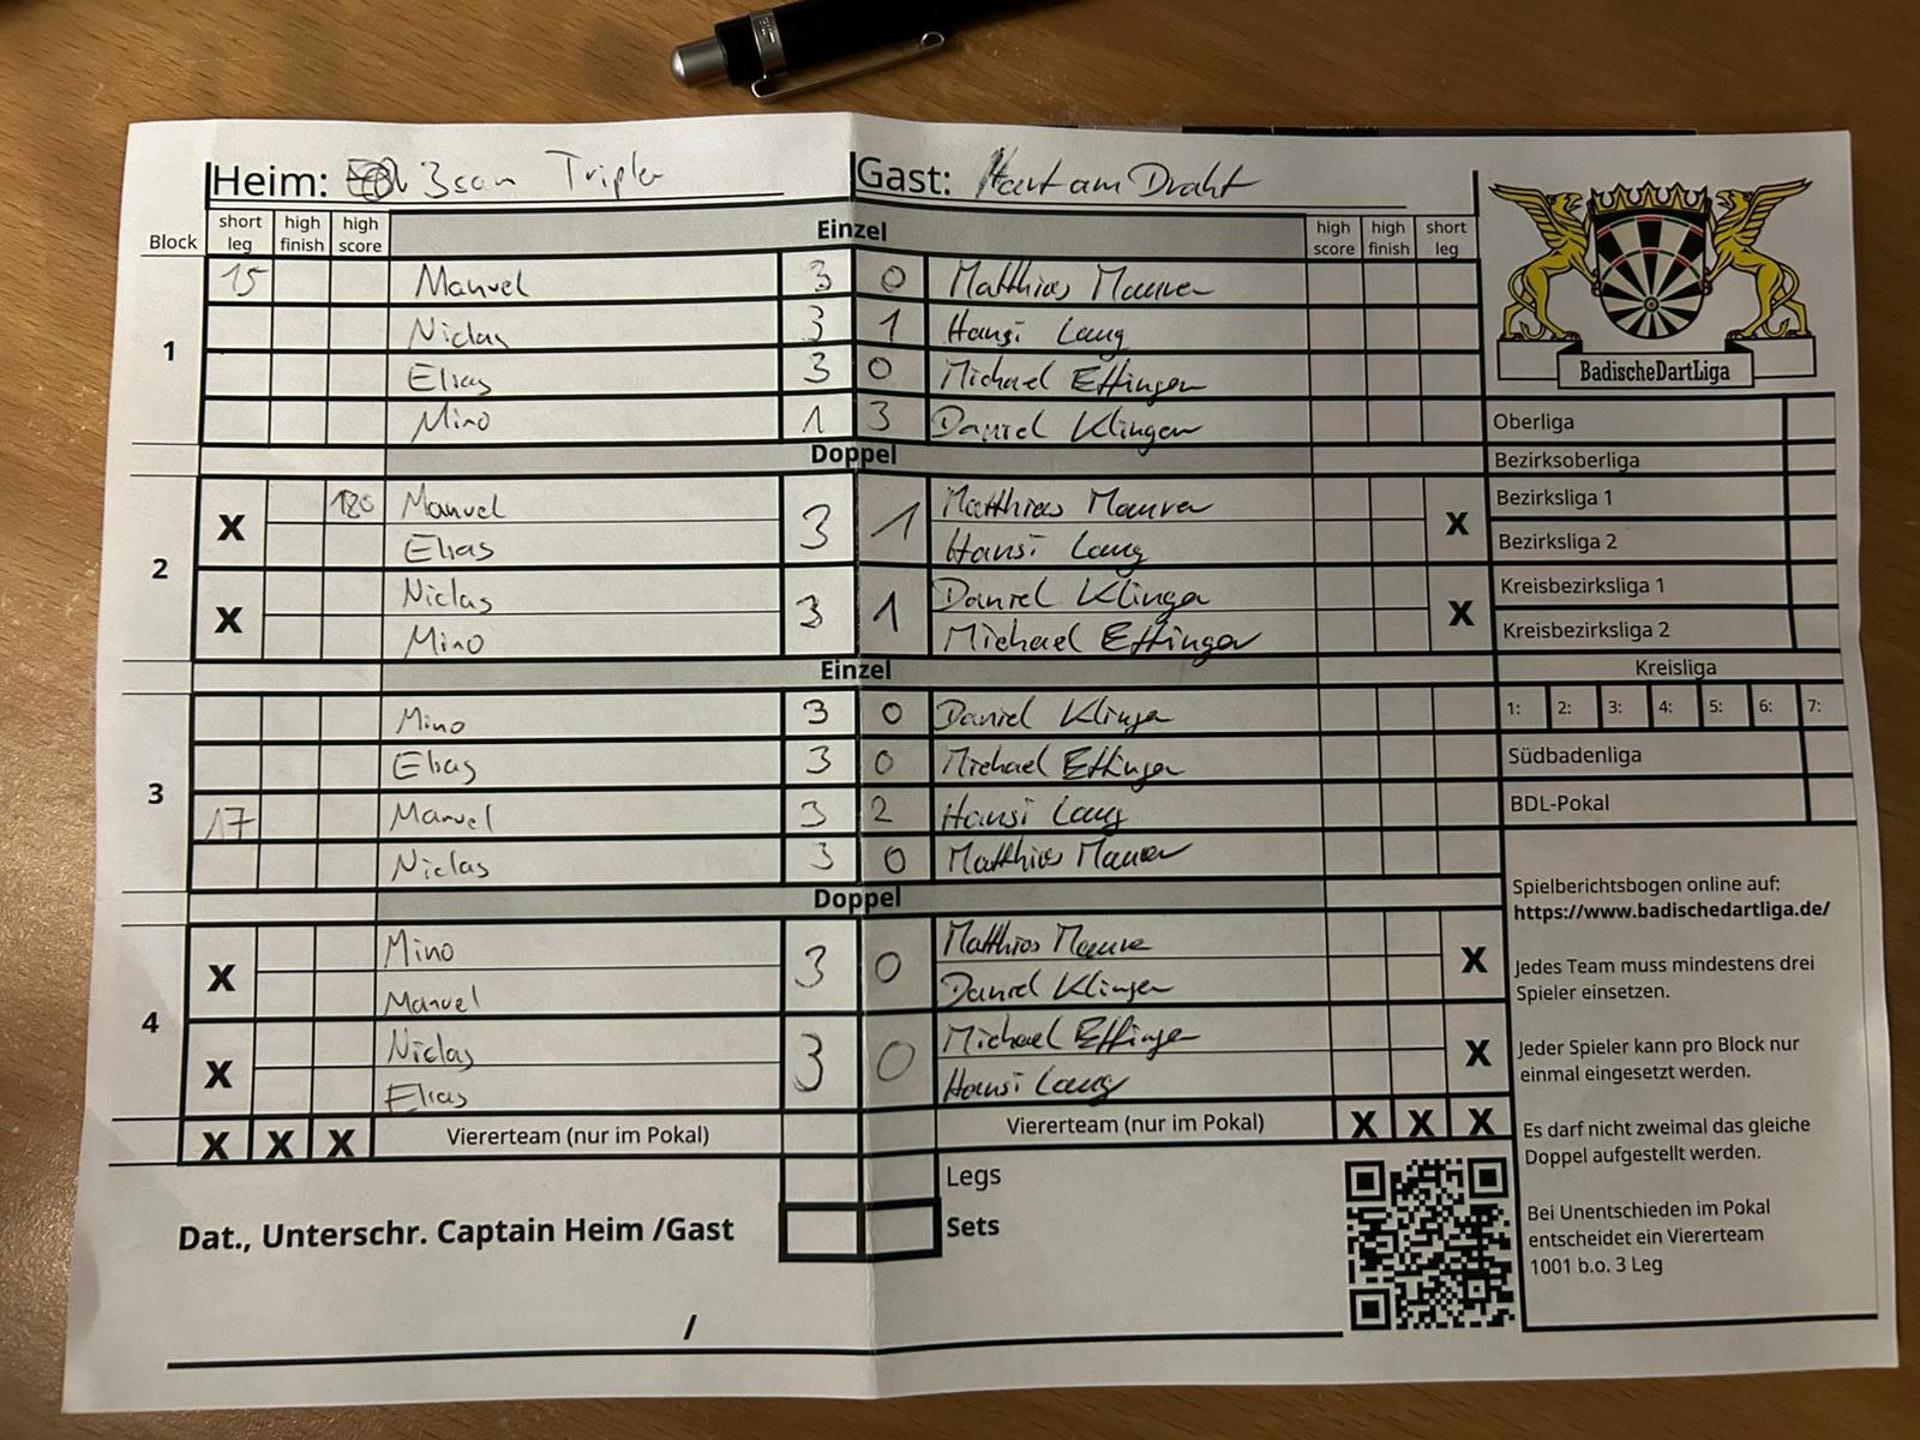 Heim: 3san Tripler Gast: Hart am Draht
Block short leg high finish high score Einzel high score high finish short leg
1
15 Manuel 3 0 Matthias Maurer
Niclas 3 1 Hansi Lang
Elias 3 0 Michael Effinger
Mino 1 3 Daniel Klinger
Doppel
2
X 180 Manuel 3 1 Matthias Maurer X
Elias Hansi Lang
X Niclas 3 1 Daniel Klinger X
Mino Michael Effinger
Einzel
3
Mino 3 0 Daniel Klinger
Elias 3 0 Michael Effinger
17 Manuel 3 2 Hansi Lang
Niclas 3 0 Matthias Maurer
Doppel
4
X Mino 3 0 Matthias Maurer X
Manuel Daniel Klinger
X Niclas 3 0 Michael Effinger X
Elias Hansi Lang
X X X Viererteam (nur im Pokal) Viererteam (nur im Pokal) X X X
Legs
Dat., Unterschr. Captain Heim /Gast Sets
/
BadischeDartLiga
Oberliga
Bezirksoberliga
Bezirksliga 1
Bezirksliga 2
Kreisbezirksliga 1
Kreisbezirksliga 2
Kreisliga
1: 2: 3: 4: 5: 6: 7:
Südbadenliga
BDL-Pokal
Spielberichtsbogen online auf:
https://www.badischedartliga.de/
Jedes Team muss mindestens drei
Spieler einsetzen.
Jeder Spieler kann pro Block nur
einmal eingesetzt werden.
Es darf nicht zweimal das gleiche
Doppel aufgestellt werden.
Bei Unentschieden im Pokal
entscheidet ein Viererteam
1001 b.o. 3 Leg